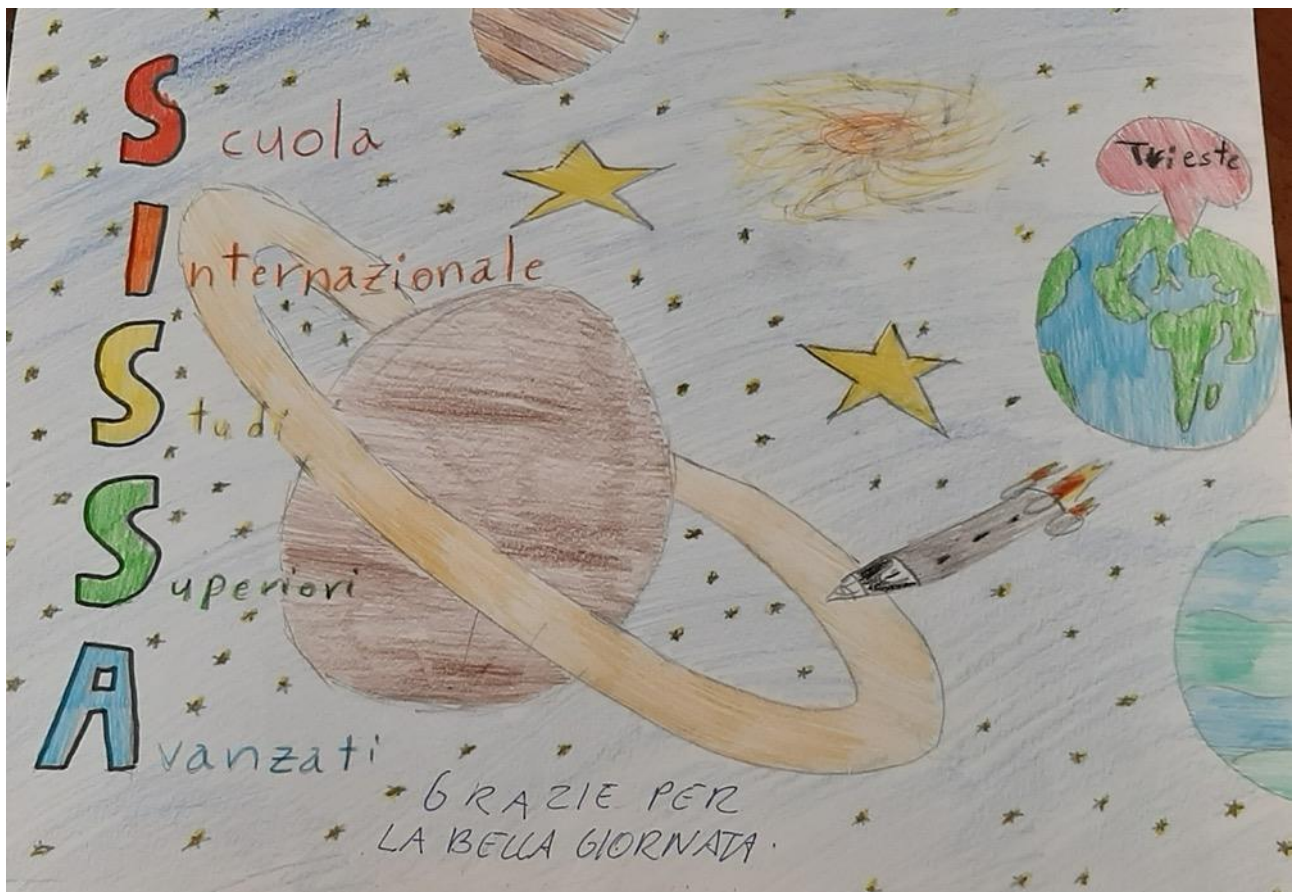 Scuola
Trieste
Internazionale
Studi
Superiori
Avanzati
GRAZIE PER
LA BELLA GIORNATA.